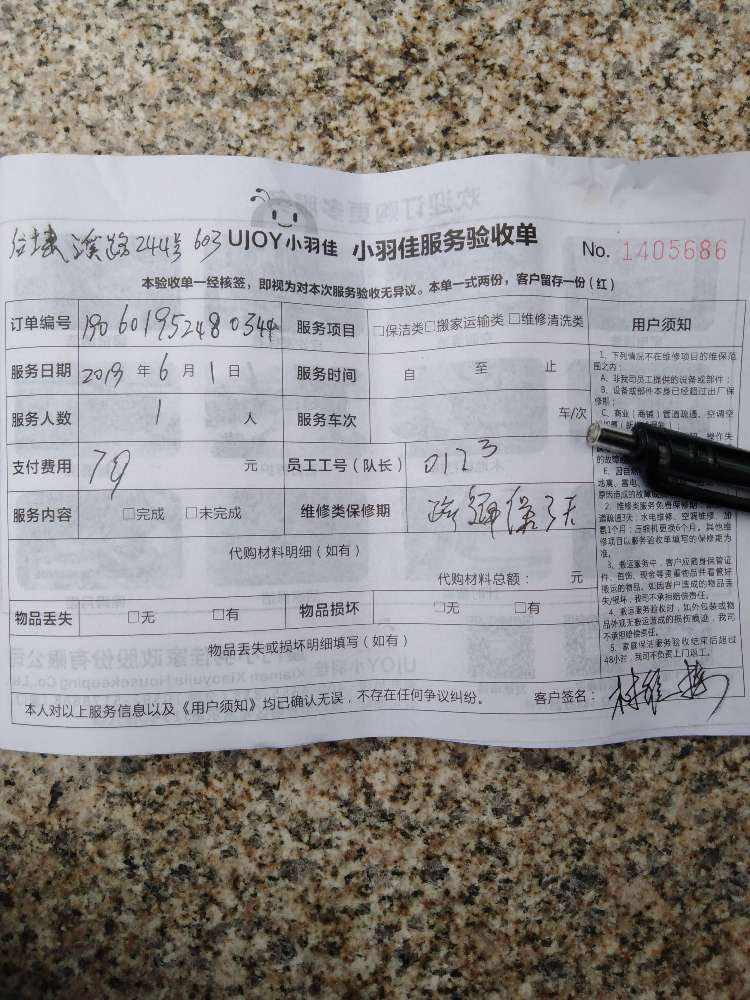 溪路244号603 UJOY小羽佳 小羽佳服务验收单 No. 1405686
本验收单一经核签，即视为对本次服务验收无异议。本单一式两份，客户留存一份（红）
订单编号 190601952480344 服务项目 □保洁类□搬家运输类□维修清洗类 用户须知
服务日期 2019 年 6 月 1 日 服务时间 自 至 止
服务人数 1 人 服务车次 车/次
支付费用 79 元 员工工号（队长） 0123
服务内容 □完成 □未完成 维修类保修期 疏通保3天
代购材料明细（如有）
代购材料总额： 元
物品丢失 □无 □有 物品损坏 □无 □有
物品丢失或损坏明细填写（如有）
本人对以上服务信息以及《用户须知》均已确认无误，不存在任何争议纠纷。 客户签名：
1、下列情况不在维修项目的维保范
围之内：
A、非我司员工提供的设备或部件；
B、设备或部件本身已经超过出厂保
修期；
C、商业（商铺）管道疏通、空调空
操作失
的故障
E、因自然
地震、雷电、
原因造成的故障或
2、维修类服务免费保修期
道疏通3天；水电维修、空调维修、加
氟1个月；压缩机更换6个月，其他维
修项目以服务验收单填写的保修期为
准。
3、搬运服务中，客户应随身保管证
件、首饰、现金等贵重物品并看管好
搬运的物品。如因客户造成的物品丢
失/损坏，我司不承担赔偿责任。
4、搬运服务验收时，如外包装或物
品外观无搬运造成的损伤痕迹，我司
不承担赔偿责任。
5、家庭保洁服务验收结束后超过
48小时，我司不负责上门返工。